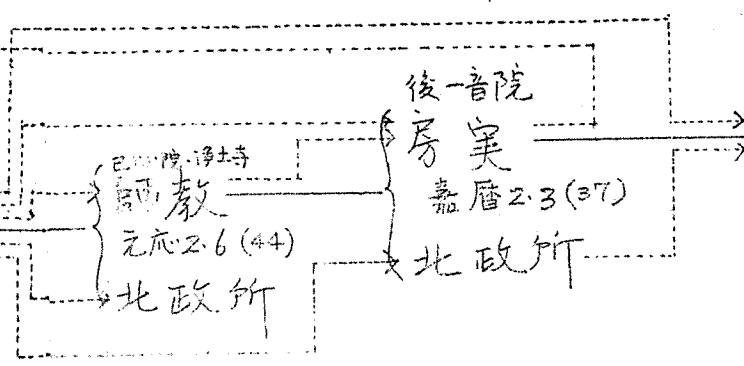 後一音院
房実
嘉暦2.3(37)
北政所
己心院・浄土寺
師教
元応2.6(44)
北政所